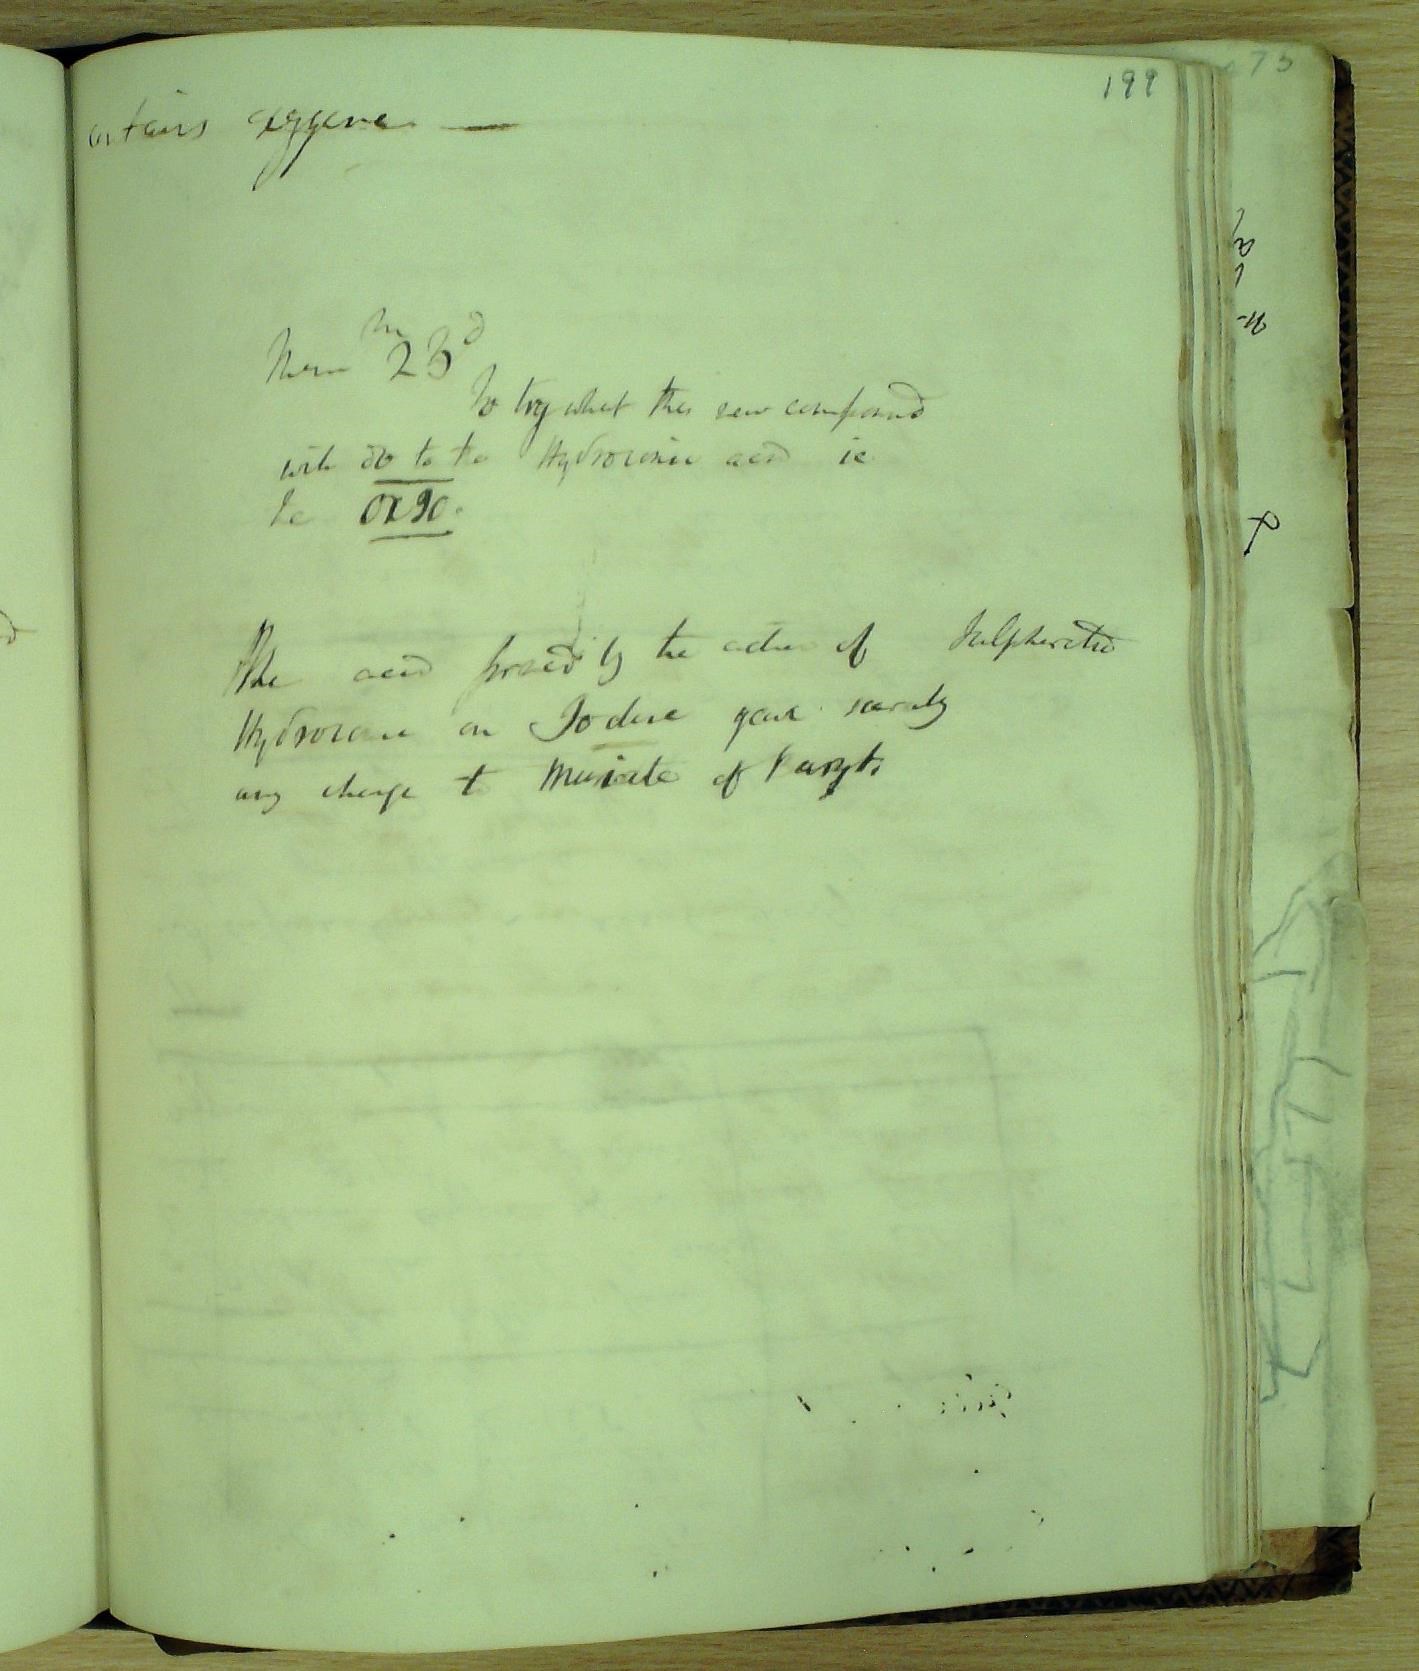 199
contains oxygene —
Mem 23d
To try what this new compound
with do to the Hydroionic acid ie
to OxIO.
The acid formed by the action of Sulphuretted
Hydrogene on Iodine gave scarcely
any change to Muriate of Baryta
75